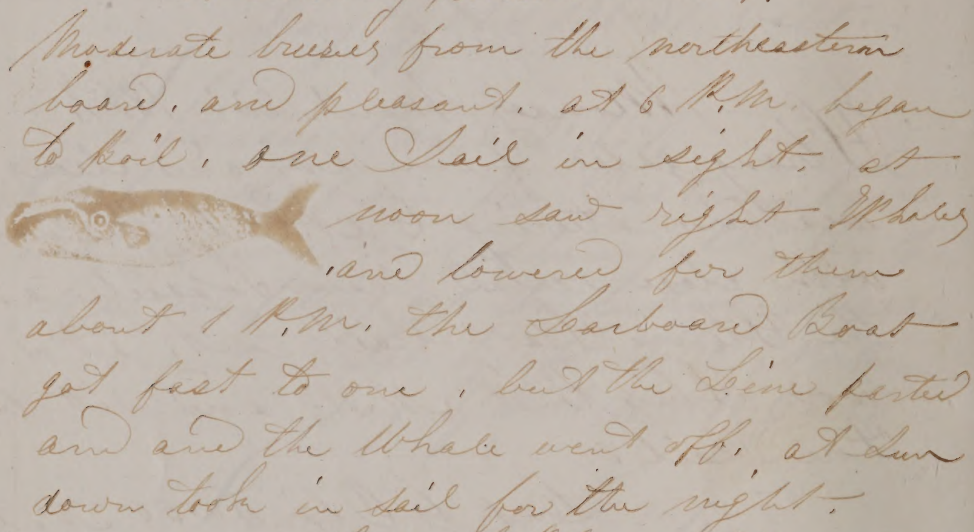 Moderate breezes from the northeastern
board. and pleasant. at 6 P.M. began
to Boil. one Sail in sight. at
noon saw right Whales
and lowered for them
about 1 P.M. the Larboard Boat
got fast to one, but the Line parted
and and the Whale went off. at Sun
down took in sail for the night.